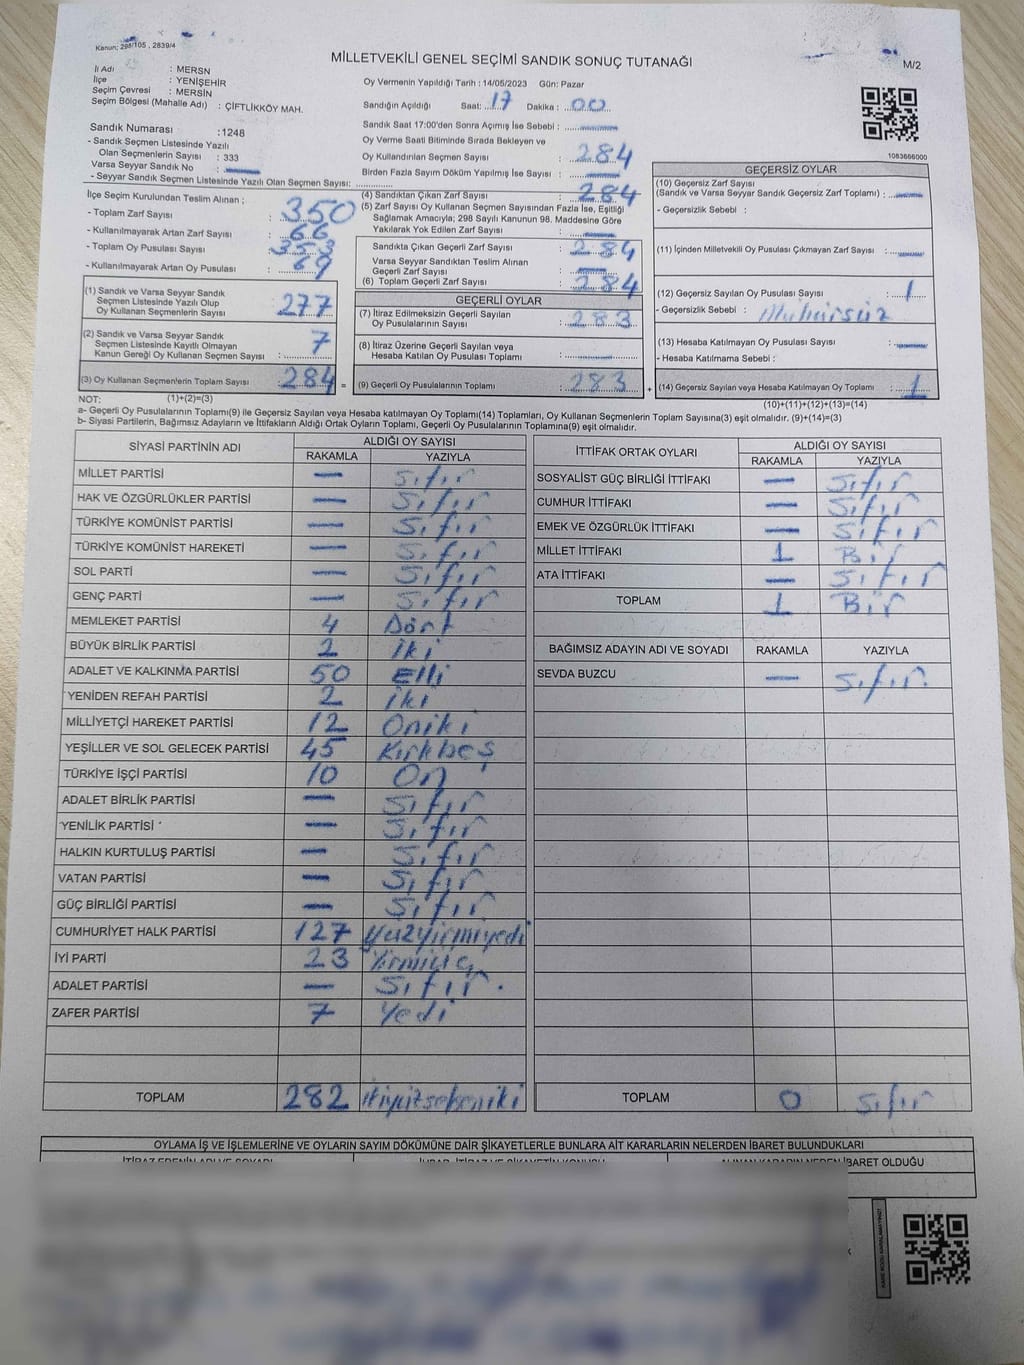 Kanun; 298/105 , 2839/4
MİLLETVEKİLİ GENEL SEÇİMİ SANDIK SONUÇ TUTANAĞI
M/2
İl Adı : MERSN
İlçe : YENİŞEHİR
Seçim Çevresi : MERSİN
Seçim Bölgesi (Mahalle Adı) : ÇİFTLİKKÖY MAH.
Sandık Numarası : 1248
- Sandık Seçmen Listesinde Yazılı
Olan Seçmenlerin Sayısı : 333
Varsa Seyyar Sandık No : —
- Seyyar Sandık Seçmen Listesinde Yazılı Olan Seçmen Sayısı:
Oy Vermenin Yapıldığı Tarih : 14/05/2023 Gün: Pazar
Sandığın Açıldığı Saat: 17 Dakika : 00
Sandık Saat 17:00'den Sonra Açımış İse Sebebi : —
Oy Verme Saati Bitiminde Sırada Bekleyen ve
Oy Kullandırılan Seçmen Sayısı : 284
Birden Fazla Sayım Döküm Yapılmış İse Sayısı : —
1083666000
İlçe Seçim Kurulundan Teslim Alınan ;
- Toplam Zarf Sayısı : 350
- Kullanılmayarak Artan Zarf Sayısı : 66
- Toplam Oy Pusulası Sayısı : 353
- Kullanılmayarak Artan Oy Pusulası : 69
(1) Sandık ve Varsa Seyyar Sandık
Seçmen Listesinde Yazılı Olup
Oy Kullanan Seçmenlerin Sayısı : 277
(2) Sandık ve Varsa Seyyar Sandık
Seçmen Listesinde Kayıtlı Olmayan
Kanun Gereği Oy Kullanan Seçmen Sayısı : 7
(3) Oy Kullanan Seçmenlerin Toplam Sayısı : 284 =
(4) Sandıktan Çıkan Zarf Sayısı : 284
(5) Zarf Sayısı Oy Kullanan Seçmen Sayısından Fazla İse, Eşitliği
Sağlamak Amacıyla; 298 Sayılı Kanunun 98. Maddesine Göre
Yakılarak Yok Edilen Zarf Sayısı : —
Sandıkta Çıkan Geçerli Zarf Sayısı : 284
Varsa Seyyar Sandıktan Teslim Alınan
Geçerli Zarf Sayısı : —
(6) Toplam Geçerli Zarf Sayısı : 284
GEÇERLİ OYLAR
(7) İtiraz Edilmeksizin Geçerli Sayılan
Oy Pusulalarının Sayısı : 283
(8) İtiraz Üzerine Geçerli Sayılan veya
Hesaba Katılan Oy Pusulası Toplamı : —
(9) Geçerli Oy Pusulalarının Toplamı : 283 +
GEÇERSİZ OYLAR
(10) Geçersiz Zarf Sayısı
(Sandık ve Varsa Seyyar Sandık Geçersiz Zarf Toplamı) : —
- Geçersizlik Sebebi :
(11) İçinden Milletvekili Oy Pusulası Çıkmayan Zarf Sayısı : —
(12) Geçersiz Sayılan Oy Pusulası Sayısı : 1
- Geçersizlik Sebebi : Mühürsüz
(13) Hesaba Katılmayan Oy Pusulası Sayısı : —
- Hesaba Katılmama Sebebi :
(14) Geçersiz Sayılan veya Hesaba Katılmayan Oy Toplamı : 1
NOT: (1)+(2)=(3)
(10)+(11)+(12)+(13)=(14)
a- Geçerli Oy Pusulalarının Toplamı(9) ile Geçersiz Sayılan veya Hesaba katılmayan Oy Toplamı(14) Toplamları, Oy Kullanan Seçmenlerin Toplam Sayısına(3) eşit olmalıdır. (9)+(14)=(3)
b- Siyasi Partilerin, Bağımsız Adayların ve İttifakların Aldığı Ortak Oyların Toplamı, Geçerli Oy Pusulalarının Toplamına(9) eşit olmalıdır.
SİYASİ PARTİNİN ADI ALDIĞI OY SAYISI
RAKAMLA YAZIYLA
MİLLET PARTİSİ — Sıfır
HAK VE ÖZGÜRLÜKLER PARTİSİ — Sıfır
TÜRKİYE KOMÜNİST PARTİSİ — Sıfır
TÜRKİYE KOMÜNİST HAREKETİ — Sıfır
SOL PARTİ — Sıfır
GENÇ PARTİ — Sıfır
MEMLEKET PARTİSİ 4 Dört
BÜYÜK BİRLİK PARTİSİ 2 İki
ADALET VE KALKINMA PARTİSİ 50 Elli
YENİDEN REFAH PARTİSİ 2 iki
MİLLİYETÇİ HAREKET PARTİSİ 12 Oniki
YEŞİLLER VE SOL GELECEK PARTİSİ 45 Kırkbeş
TÜRKİYE İŞÇİ PARTİSİ 10 On
ADALET BİRLİK PARTİSİ — Sıfır
YENİLİK PARTİSİ — Sıfır
HALKIN KURTULUŞ PARTİSİ — Sıfır
VATAN PARTİSİ — Sıfır
GÜÇ BİRLİĞİ PARTİSİ — Sıfır
CUMHURİYET HALK PARTİSİ 127 Yüzyirmiyedi
İYİ PARTİ 23 Yirmiüç
ADALET PARTİSİ — Sıfır.
ZAFER PARTİSİ 7 Yedi
TOPLAM 282 ikiyüzsekseniki
İTTİFAK ORTAK OYLARI ALDIĞI OY SAYISI
RAKAMLA YAZIYLA
SOSYALİST GÜÇ BİRLİĞİ İTTİFAKI — Sıfır
CUMHUR İTTİFAKI — Sıfır
EMEK VE ÖZGÜRLÜK İTTİFAKI — Sıfır
MİLLET İTTİFAKI 1 Bir
ATA İTTİFAKI — Sıfır
TOPLAM 1 Bir
BAĞIMSIZ ADAYIN ADI VE SOYADI RAKAMLA YAZIYLA
SEVDA BUZCU — Sıfır.
TOPLAM 0 Sıfır
OYLAMA İŞ VE İŞLEMLERİNE VE OYLARIN SAYIM DÖKÜMÜNE DAİR ŞİKAYETLERLE BUNLARA AİT KARARLARIN NELERDEN İBARET BULUNDUKLARI
İBARET OLDUĞU